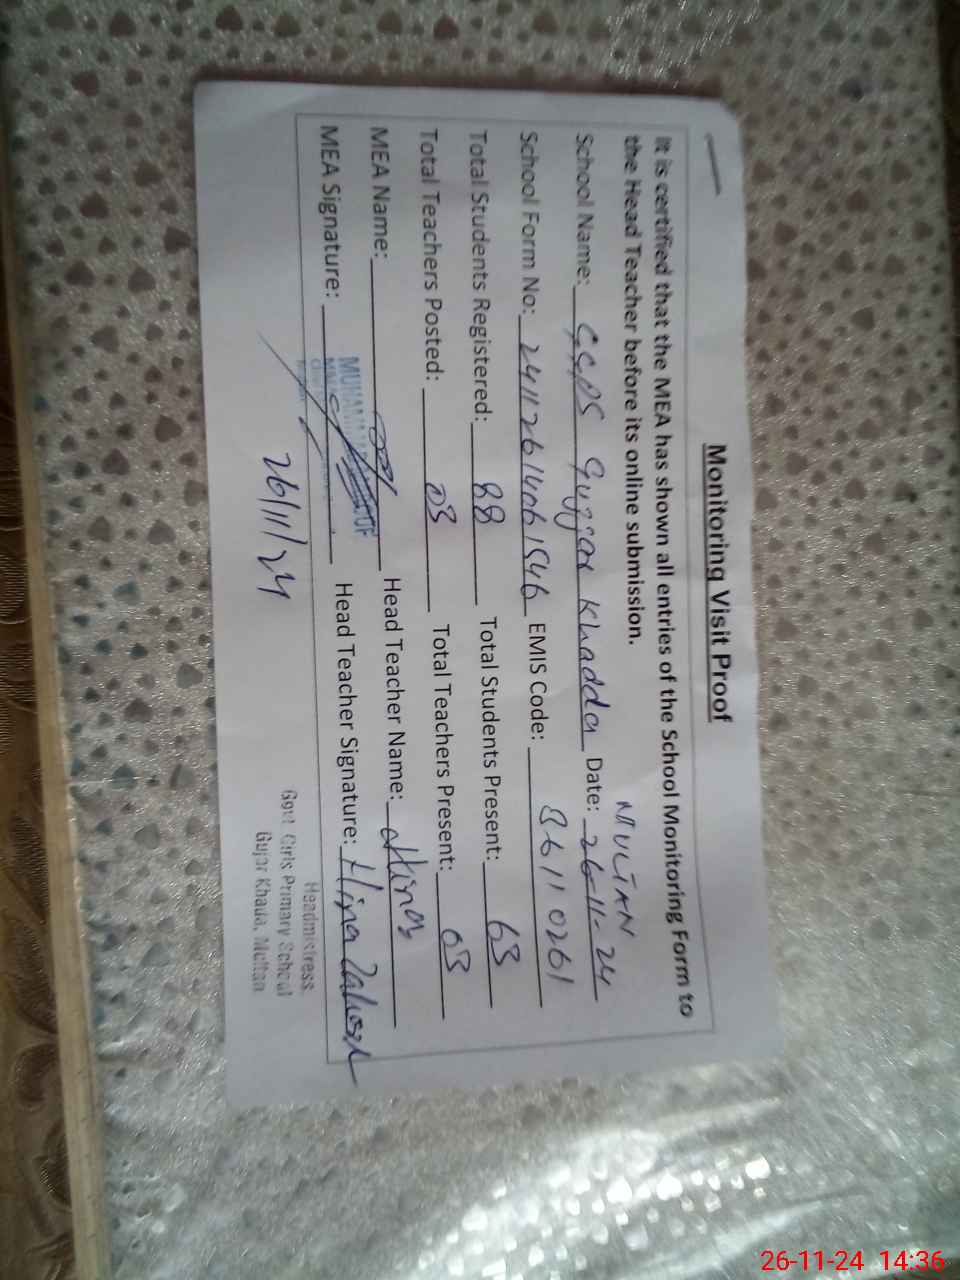 Monitoring Visit Proof
It is certified that the MEA has shown all entries of the School Monitoring Form to
the Head Teacher before its online submission.
MULTAN
School Name: GGPS Gujjar Khadda Date: 26-11-24
School Form No: EMIS Code: 36110261
Total Students Registered: 88 Total Students Present: 63
Total Teachers Posted: 03 Total Teachers Present: 03
MEA Name: MUHAMMAD Head Teacher Name: Hina
MEA Signature: Head Teacher Signature: Hina
26/11/24
Headmistress.
Govt Girls Primary School
Gujar Khada, Multan
26-11-24 14:36